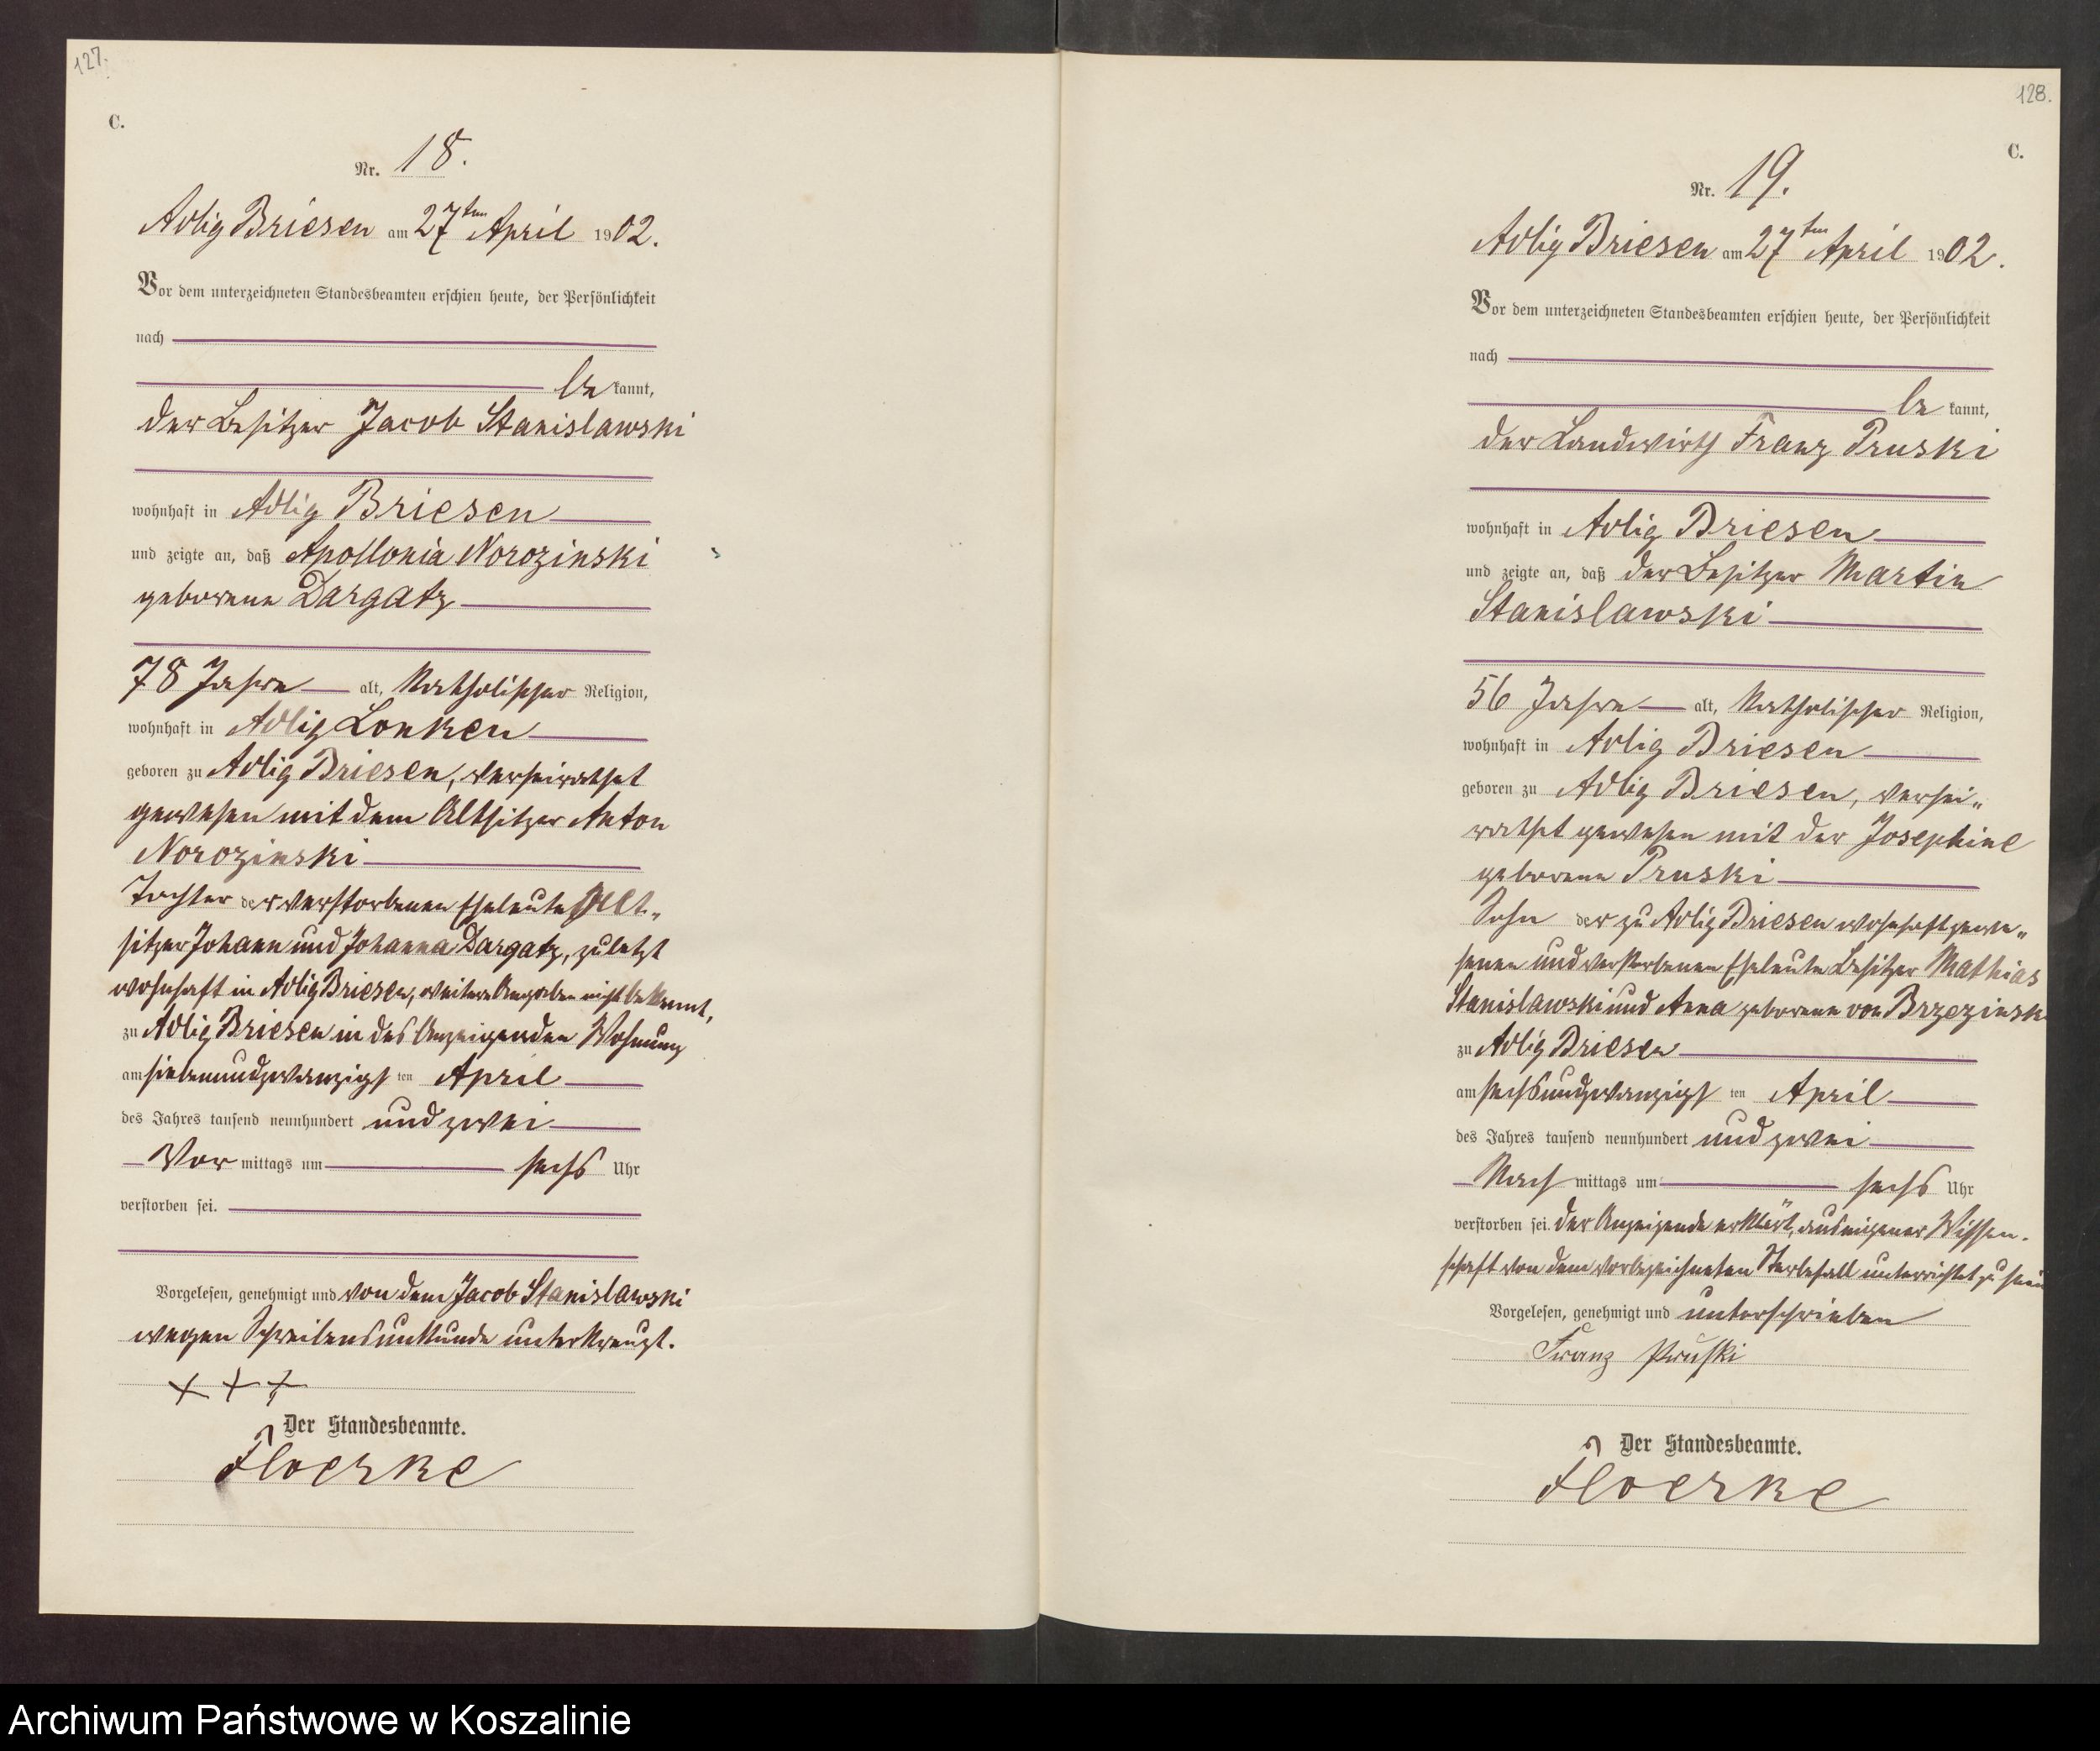 127.
C.
Nr. 18.
Adlig Briesen am 27ten April 1902.
Vor dem unterzeichneten Standesbeamten erschien heute, der Persönlichkeit
nach
be kannt,
der Besitzer Jacob Stanislawski
wohnhaft in Adlig Briesen
und zeigte an, daß Apollonia Norozinski
geborene Dargatz
78 Jahre alt, katholischer Religion,
wohnhaft in Adlig Lonken
geboren zu Adlig Briesen, verheirathet
gewesen mit dem Altsitzer Anton
Norozinski
Tochter der verstorbenen Eheleute Alt„
sitzer Johann und Johanna Dargatz, zuletzt
wohnhaft in Adlig Briesen, weitere Angaben nicht bekannt,
zu Adlig Briesen in des Anzeigenden Wohnung
am siebenundzwanzigsten April
des Jahres tausend neunhundert und zwei
Vor mittags um sechs Uhr
verstorben sei.
Vorgelesen, genehmigt und von dem Jacob Stanislawski
wegen Schreibensunkunde unterkreuzt.
+ + +
Der Standesbeamte.
Floerke
128.
C.
Nr. 19.
Adlig Briesen am 27ten April 1902.
Vor dem unterzeichneten Standesbeamten erschien heute, der Persönlichkeit
nach
be kannt,
der Landwirth Franz Pruski
wohnhaft in Adlig Briesen
und zeigte an, daß der Besitzer Martin
Stanislawski
56 Jahre alt, katholischer Religion,
wohnhaft in Adlig Briesen
geboren zu Adlig Briesen, verhei„
rathet gewesen mit der Josephine
geborene Pruski
Sohn der zu Adlig Briesen wohnhaft gewe„
senen und verstorbenen Eheleute Besitzer Mathias
Stanislawski und Anna geborene von Brzezinsk
zu Adlig Briesen
am sechsundzwanzigsten April
des Jahres tausend neunhundert und zwei
Nach mittags um sechs Uhr
verstorben sei. Der Anzeigende erklärt, aus eigener Wissen-
schaft von dem vorbezeichneten Sterbefall unterrichtet zu sein
Vorgelesen, genehmigt und unterschrieben
Franz Pruski
Der Standesbeamte.
Floerke
Archiwum Państwowe w Koszalinie